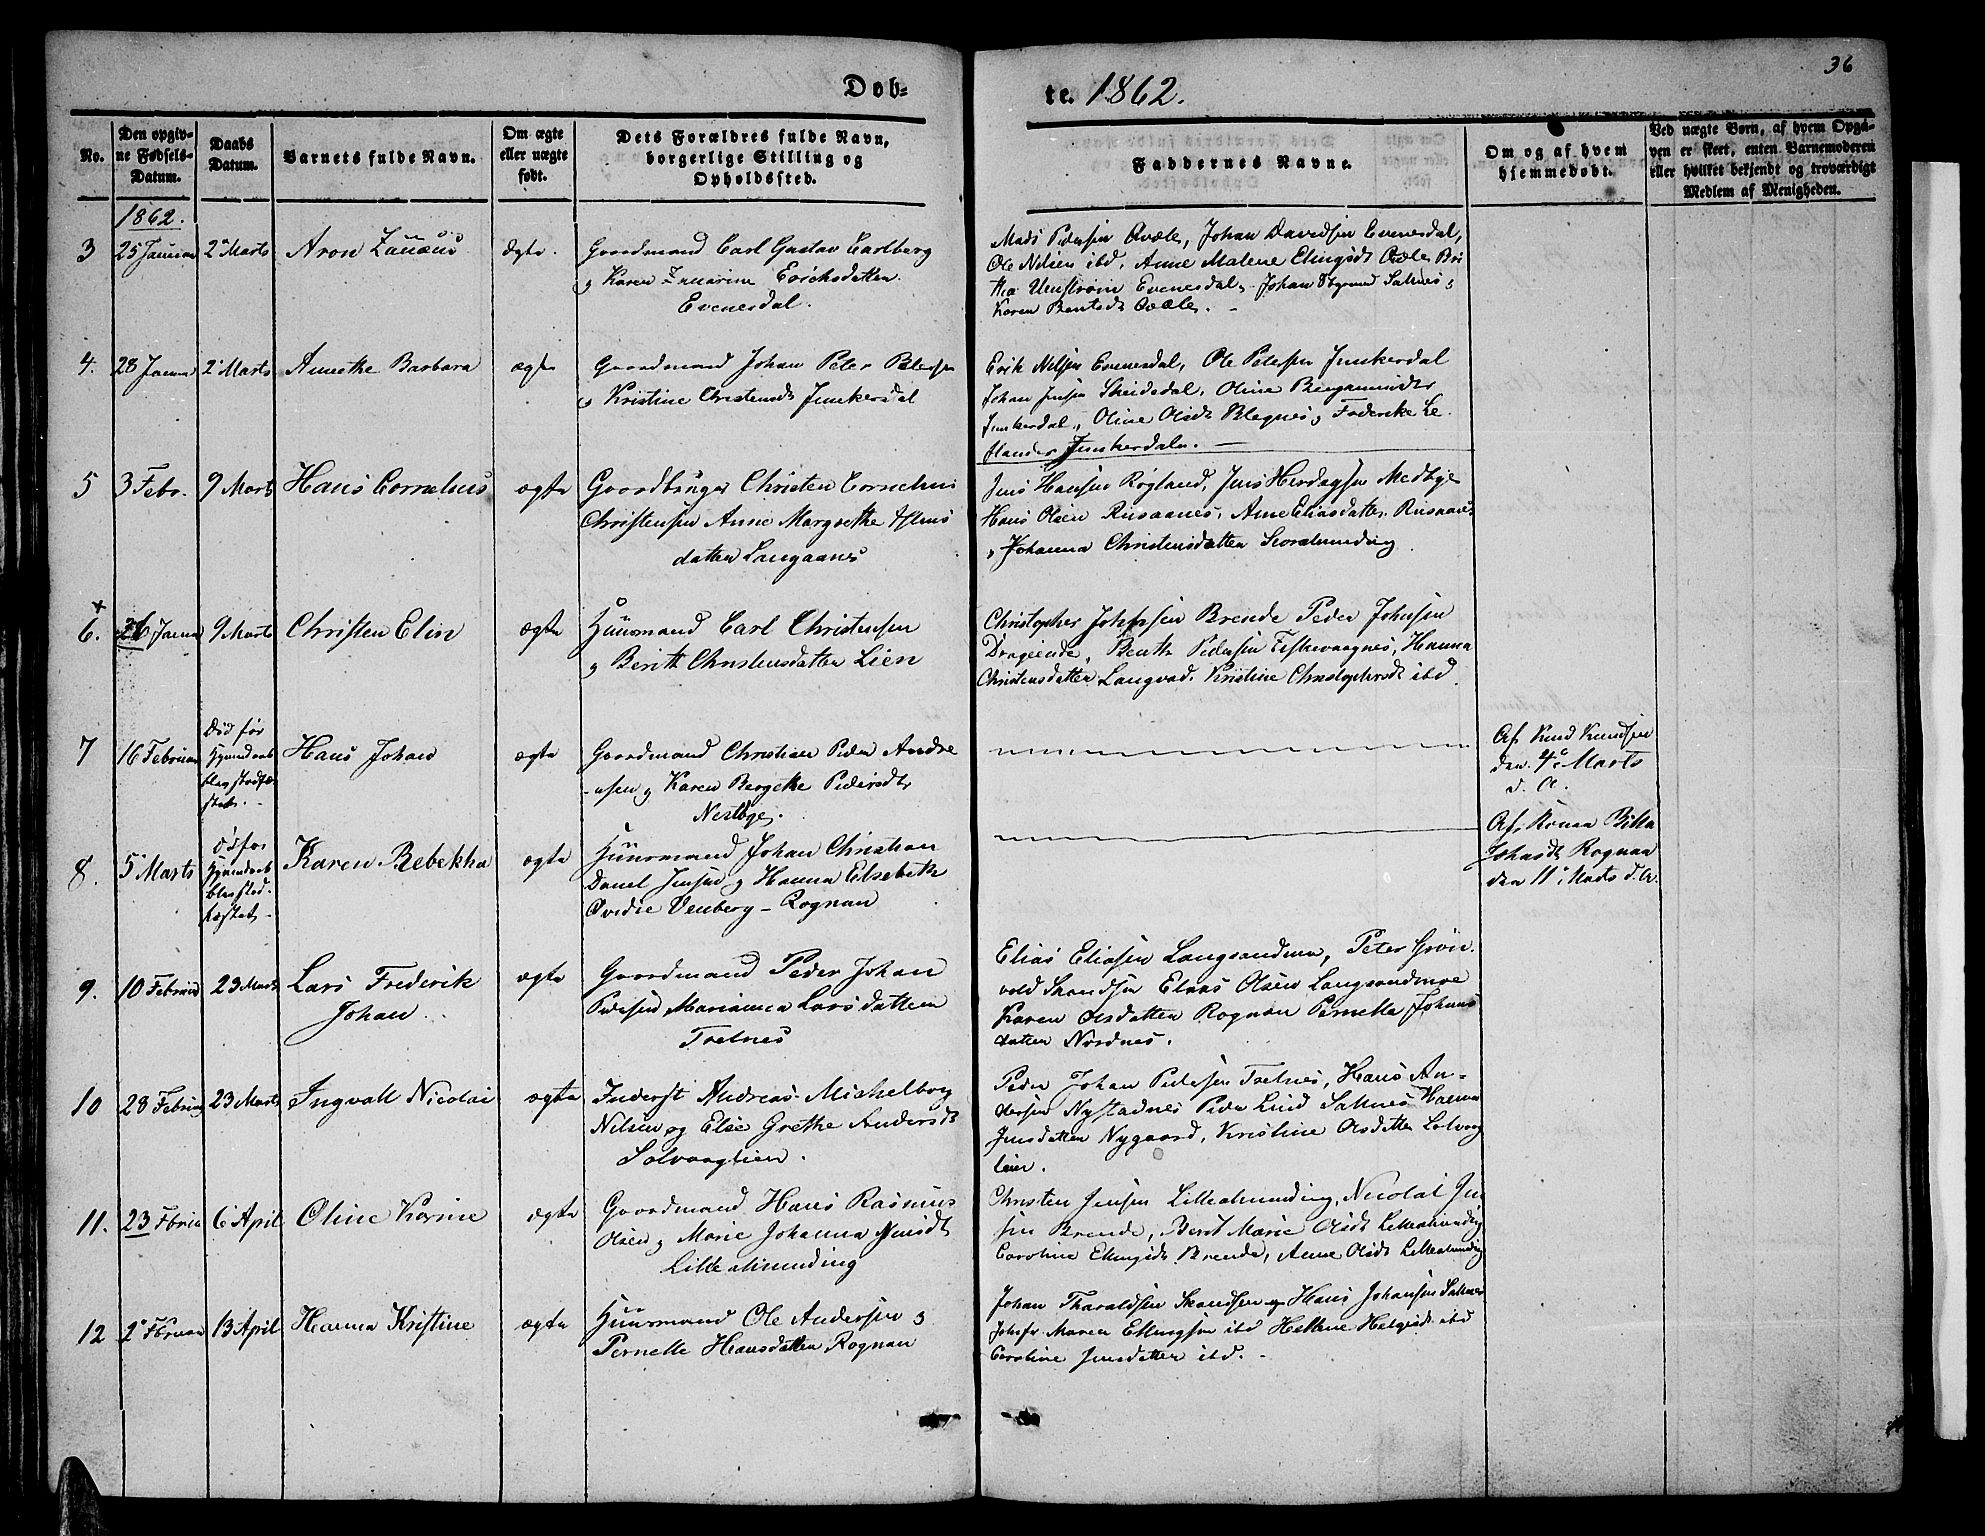 36
Døb-
te. 1862.
No.
Den opgiv-
ne Fødsels-
Datum.
Daabs
Datum.
Barnets fulde Navn.
Om ægte
eller uægte
født.
Dets Forældres fulde Navn,
borgerlige Stilling og
Opholdssted.
Faddernes Navne.
Om og af hvem
hjemmedøbt.
Ved uægte Børn, af hvem Opgi-
ven er skeet, enten Barnemoderen
eller hvilket bekjendt og troværdigt
Medlem af Menigheden.
1862.
3
25 Januar
2 Marts
Aron
Ægte.
Gaardmand Carl Gustav Carlberg
og Karen Erichsdatter
Evenesdal.
Mads Pedersen Qvæle, Johan Davidsen Evenesdal,
Ole Nilsen ibd, Anne Malene Ellingsdt Qvæle
Evenesdal, Johan Saltnes og
Karen Bentsdt Qvæle.
4.
28 Janua
2 Marts
Anethe Barbara
ægte
Gaardmand Johan Peter Petersen
og Kristine Christensdt Junkersdal
Erik Nilsen Evenesdal, Ole Petersen Junkerdal
Johan Jensen Skeidedal, Oline Benjaminsdtr
Junkerdal, Oline Olsdt og Frederike
Junkerdalen.
5
3 Febr.
9 Marts
Hans Cornelius
ægte
Gaardbruger Christen Cornelius
Christensen Anne Margrethe
datter Langaanes
Jens Hansen Røgland, Jens Medbye
Hans Olsen Rusaanes, Anne Eliasdatter Rusaanes
og Johanna Christensdatter Storalminding
+
6.
26 Janua
9 Marts
Christen Elin
ægte
Huusmand Carl Christensen
og Berith Christensdatter Lien
Christopher Brende Peder Johnsen
Drageide, Benth Pedersen Fiskevaagnes, Hanna
Christensdatter Langvad, Kristine Christophersdt ibd
7
16 Februar
Død før
Hans Johan
ægte
Gaardmand Christian Peder Andre
-asen og Karen Bergethe Pedersdtr
Nestbye.
Af Knud Knudsen
den 4 Marts
d. A.
8.
5 Marts
Karen Rebekka
ægte
Huusmand Johan Christian
Daniel Jensen og Hanna Elsebeth
Ovedie Venberg - Rognan
Af Rognan
den 11 Marts d. A.
9.
10 Februar
23 Marts
Lars Frederik
Johan
ægte
Gaardmand Peder Johan
Pedersen Marianna Larsdatter
Tretnes
Elias Eliasen Langsandmo, Peter Grøn
vold Skandsen Elias Olsen Langsandmoe
Karen Olsdatter Rognan Pernelle Johans
datter Nordnes.
10
28 Februar
23 Marts
Ingvall Nicolai
ægte
Inderst Andreas Michelborg
Nilsen og Else Grethe Andersdt
Solvaaglien.
Peder Johan Pedersen Tretnes, Hans An-
dersen Nystadnes Peder Lund Saltnes Hanna
Jensdatter Nygaard, Kristine Olsdatter Solvaag
lien.
11.
23 Februa
6 April
Oline Karine
ægte
Gaardmand Hans Rasmus
Olsen og Marie Johanna Jensdt
Lillealminding
Christen Jensen Lillealminding, Nicolai Jen
sen Brende, Berit Marie Olsdt Lillealminding
Caroline Ellingsdt Brende, Anne Olsdt Lillealminding
12
2 Februar
13 April
Hanna Kristine
ægte
Huusmand Ole Andersen og
Pernelle Hansdatter Rognan
Johan Tharaldsen Skandsen og Hans Johansen Saltnes
Maren Ellingsen ibd Hellene Helgesdt ibd
Caroline Jensdatter ibd. -